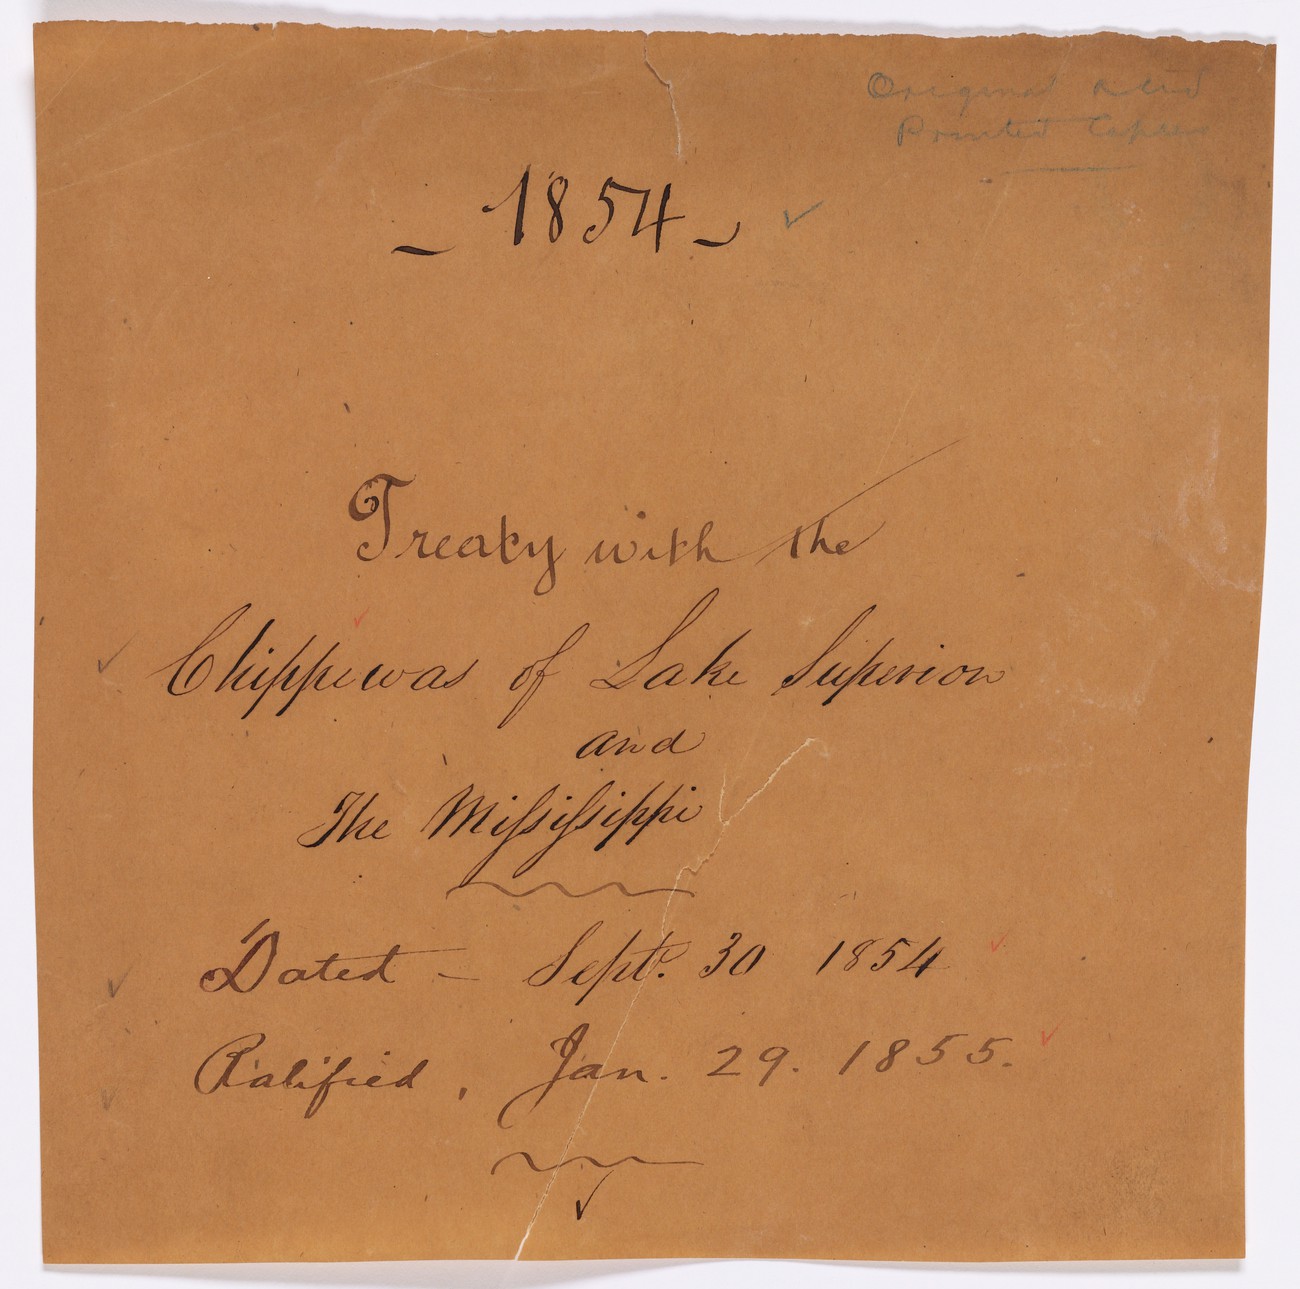 Original and
Printed Copies
- 1854 -
Treaty with the
Chippewas of Lake Superior
and
The Mississippi
Dated - Sept. 30 1854
Ratified, Jan. 29. 1855.